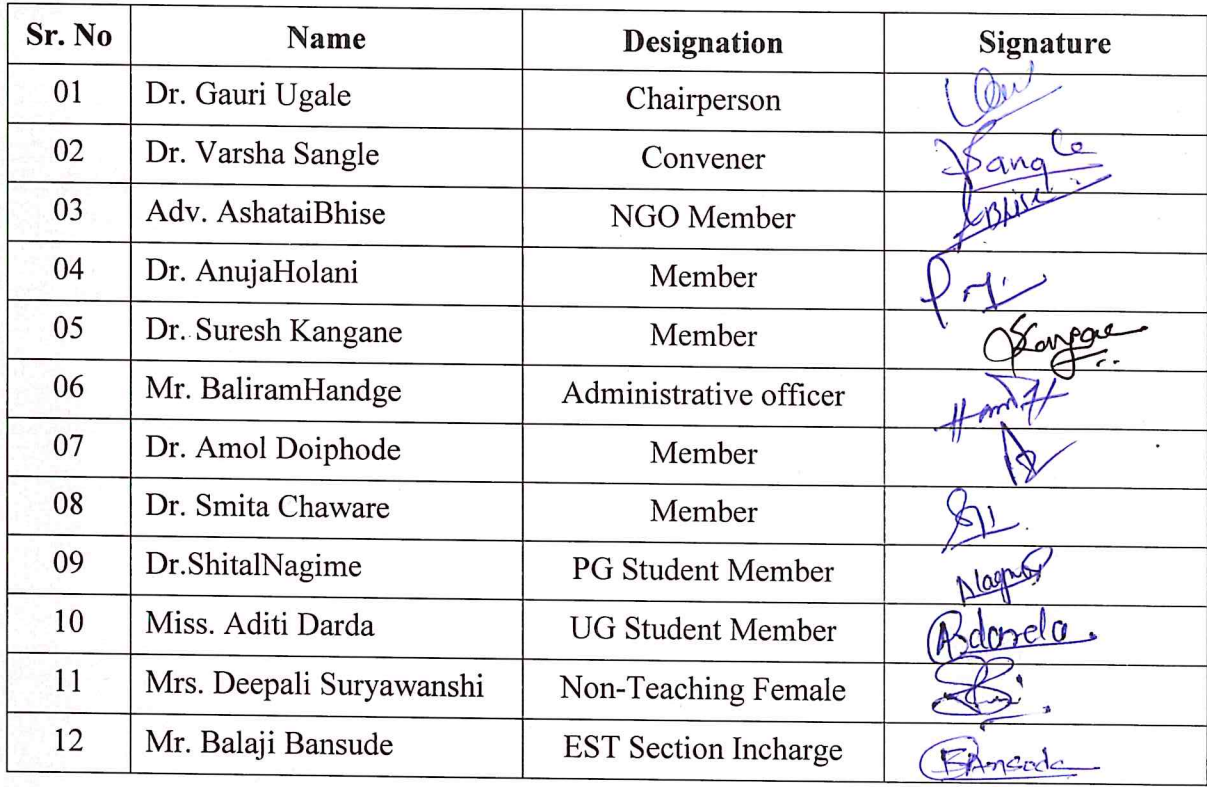 Sr. No Name Designation Signature
01 Dr. Gauri Ugale Chairperson
02 Dr. Varsha Sangle Convener Sangle
03 Adv. AshataiBhise NGO Member Bhise
04 Dr. AnujaHolani Member
05 Dr. Suresh Kangane Member
06 Mr. BaliramHandge Administrative officer
07 Dr. Amol Doiphode Member
08 Dr. Smita Chaware Member
09 Dr.ShitalNagime PG Student Member
10 Miss. Aditi Darda UG Student Member
11 Mrs. Deepali Suryawanshi Non-Teaching Female
12 Mr. Balaji Bansude EST Section Incharge